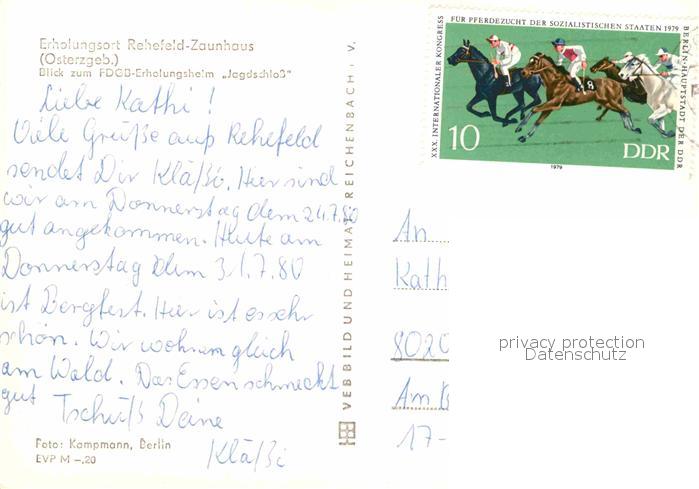 Erholungsort Rehefeld-Zaunhaus
(Osterzgeb.)
Blick zum FDGB-Erholungsheim „Jagdschloß"
Liebe Kathi!
Viele Grüße aus Rehefeld
sendet Dir Kläßi. Hier sind
wir am Donnerstag dem 24.7.80
gut angekommen. Heute am
Donnerstag dem 31.7.80
ist Bergfest. Hier ist es sehr
schön. Wir wohnen gleich
am Wald. Das Essen schmeckt
gut Tschüß Deine
Kläßi
Foto: Kampmann, Berlin
EVP M -.20
VEB BILD UND HEIMAT REICHENBACH i. V.
XXX. INTERNATIONALER KONGRESS
FÜR PFERDEZUCHT DER SOZIALISTISCHEN STAATEN 1979
BERLIN-HAUPTSTADT DER DDR
10
8
DDR
1979
An
Kath
8020
Am
17-
privacy protection
Datenschutz